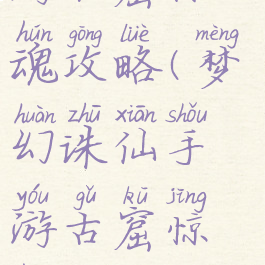 hún gōng lüè mèng
魂攻略(梦
huàn zhū xiān shǒu
幻诛仙手
yóu gǔ kū jīng
游古窟惊